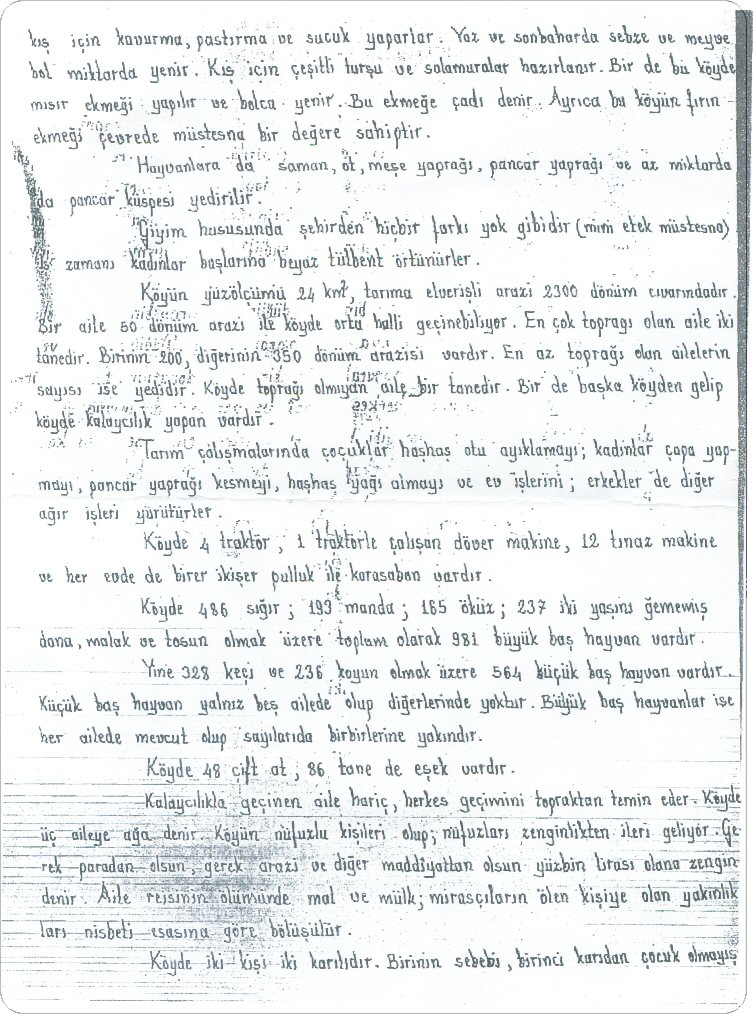 kış için kavurma, pastırma ve sucuk yaparlar. Yaz ve sonbaharda sebze ve meyve
bol miktarda yenir. Kış için çeşitli turşu ve salamuralar hazırlanır. Bir de bu köyde
mısır ekmeği yapılır ve bolca yenir. Bu ekmeğe çadı denir. Ayrıca bu köyün fırın
ekmeği çevrede müstesna bir değere sahiptir.
Hayvanlara da saman, ot, meşe yaprağı, pancar yaprağı ve az miktarda
da pancar küspesi yedirilir.
Giyim hususunda şehirden hiçbir farkı yok gibidir (mini etek müstesna)
İş zamanı kadınlar başlarına beyaz tülbent örtünürler.
Köyün yüzölçümü 24 km², tarıma elverişli arazi 2300 dönüm civarındadır.
Bir aile 50 dönüm arazi ile köyde orta halli geçinebiliyor. En çok toprağı olan aile iki
tanedir. Birinin 200, diğerinin 350 dönüm arazisi vardır. En az toprağı olan ailelerin
sayısı ise yedidir. Köyde toprağı olmıyan aile bir tanedir. Bir de başka köyden gelip
köyde kalaycılık yapan vardır.
Tarım çalışmalarında çocuklar haşhaş otu ayıklamayı; kadınlar çapa yap-
mayı, pancar yaprağı kesmeyi, haşhaş yağı almayı ve ev işlerini; erkekler de diğer
ağır işleri yürütürler.
Köyde 4 traktör, 1 traktörle çalışan döver makine, 12 tınaz makine
ve her evde de birer ikişer pulluk ile karasaban vardır.
Köyde 486 sığır; 193 manda; 165 öküz; 237 iki yaşını ğememiş
dana, malak ve tosun olmak üzere toplam olarak 981 büyük baş hayvan vardır.
Yine 328 keçi ve 236 koyun olmak üzere 564 küçük baş hayvan vardır.
Küçük baş hayvan yalnız beş ailede olup diğerlerinde yoktur. Büyük baş hayvanlar ise
her ailede mevcut olup sayılarıda birbirlerine yakındır.
Köyde 48 çift at, 86 tane de eşek vardır.
Kalaycılıkla geçinen aile hariç, herkes geçimini topraktan temin eder. Köyde
üç aileye ağa denir. Köyün nüfuzlu kişileri olup; nüfuzları zenginlikten ileri geliyor. Ge-
rek paradan olsun, gerek arazi ve diğer maddiyattan olsun yüzbin lirası olana zengin
denir. Aile reisinin ölümünde mal ve mülk; mirasçıların ölen kişiye olan yakınlık
ları nisbeti esasına göre bölüşülür.
Köyde iki kişi iki karılıdır. Birinin sebebi, birinci karıdan çocuk olmayış